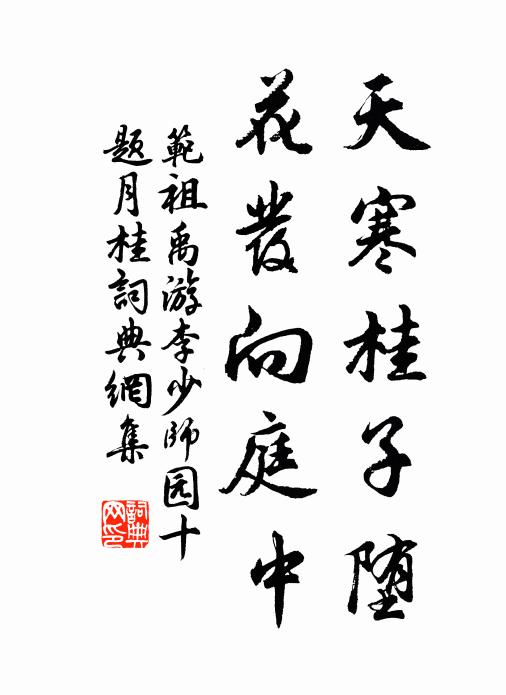 天寒桂子堕
花發向庭中
範祖禹游李少師园十
题月桂詞典網集
詞典
网印